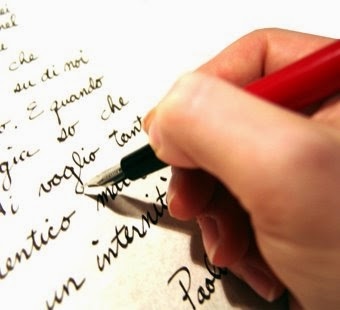 nel
che
su di noi
o. E quando
so che
i voglio tant
entico
un internit
Paol